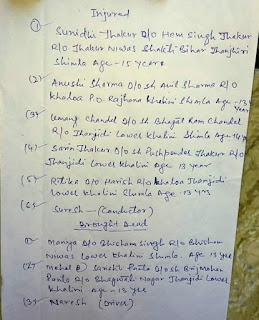 Injured
(1) Sunidhi Thakur D/O Hem Singh Thakur
R/O Thakur Niwas Shakti Bihar Jhanjhiri
Shimla Age - 15 years
(2) Anushi Sharma D/o Sh Anil Sharma R/O
Khaloa P.O. Rajhana Khalini Shimla Age - 13 year
(3) Umang Chandel D/o Sh Bhagat Ram Chandel
R/O Jhanjidi Lower Khalini Shimla Age - 14 yrs
(4) Sarin Thakur D/o Sh Pushpender Thakur R/O
Jhanjidi Lower Khalini Age 13 year
(5) Ritika D/o Harish R/O Khaloa Jhanjidi
Lower Khalini Shimla Age - 13 yrs
(6) Suresh - (Conductor)
Brought Dead
(1) Maniya D/o Bhicham Singh R/o Bhicham
Niwas Lower Khalini Shimla.
(2) Mehal @ D/o Sh Raj Mohan
Panta R/O Bhagwati Nagar Jhanjidi Lower
Khalini Age - 13 yrs
(3) Naresh (Driver)